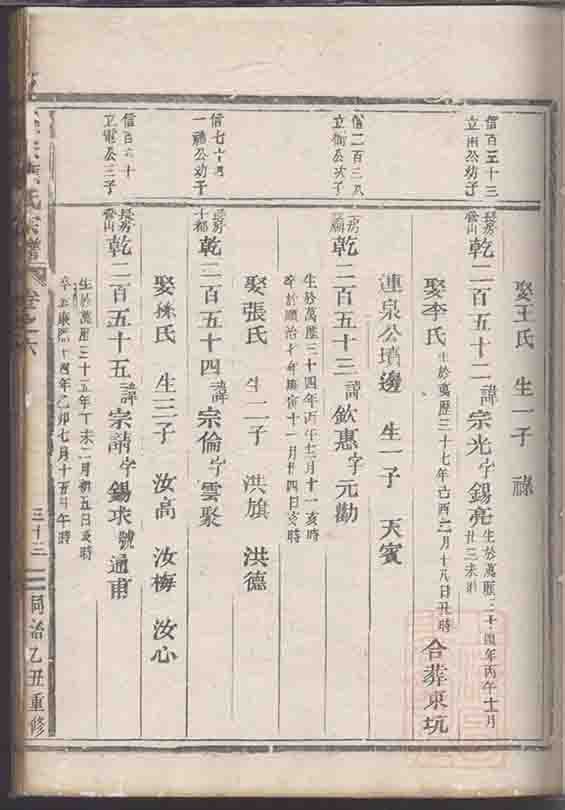 娶王氏 生一子 祿
信百五十三
立用公幼子
長房
營山
乾二百五十二 諱宗光 字錫亮
生於萬歷三十四年丙午十月
廿三未時
娶李氏 生於萬歷三十七年己酉二月十八日丑時 合葬東坑
連泉公墳邊 生一子 天賓
信二百三八
立衛公次子
乾二百五十三 諱欽惠 字元勸
生於萬歷三十四年丙午十二月十一亥時
卒於順治七年庚寅十一月廿四日亥時
娶張氏 生二子 洪旗 洪德
信七十四
一禮公幼子
長房
十都
乾二百五十四 諱宗倫 字雲聚
娶孫氏 生三子 汝高 汝梅 汝心
信百六十
立電公三子
長房
營山
乾二百五十五 諱宗請 字錫求 號通甫
生於萬歷三十五年丁未二月初五日亥時
卒於康熙十四年乙卯七月十五日午時
氏宗譜 卷之六 三十三 同治乙丑重修